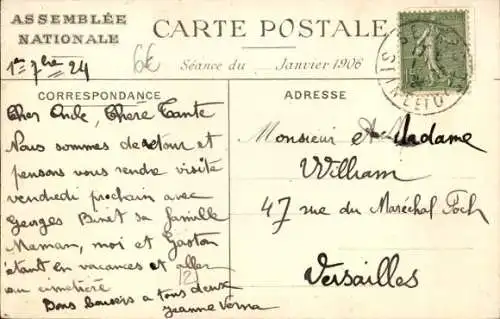 ASSEMBLÉE
NATIONALE
CARTE POSTALE
Séance du Janvier 1906
6€
1er 7bre 24
CORRESPONDANCE
ADRESSE
Cher Oncle, Chère Tante
Nous sommes de retour et
pensons vous rendre visite
vendredi prochain avec
Georges Binet sa famille
Maman, moi et Gaston
étant en vacances et aller
au cimetière
Bons baisers a tous deux
Jeanne Verna
Monsieur et Madame
William
47 rue du Maréchal Foch
Versailles